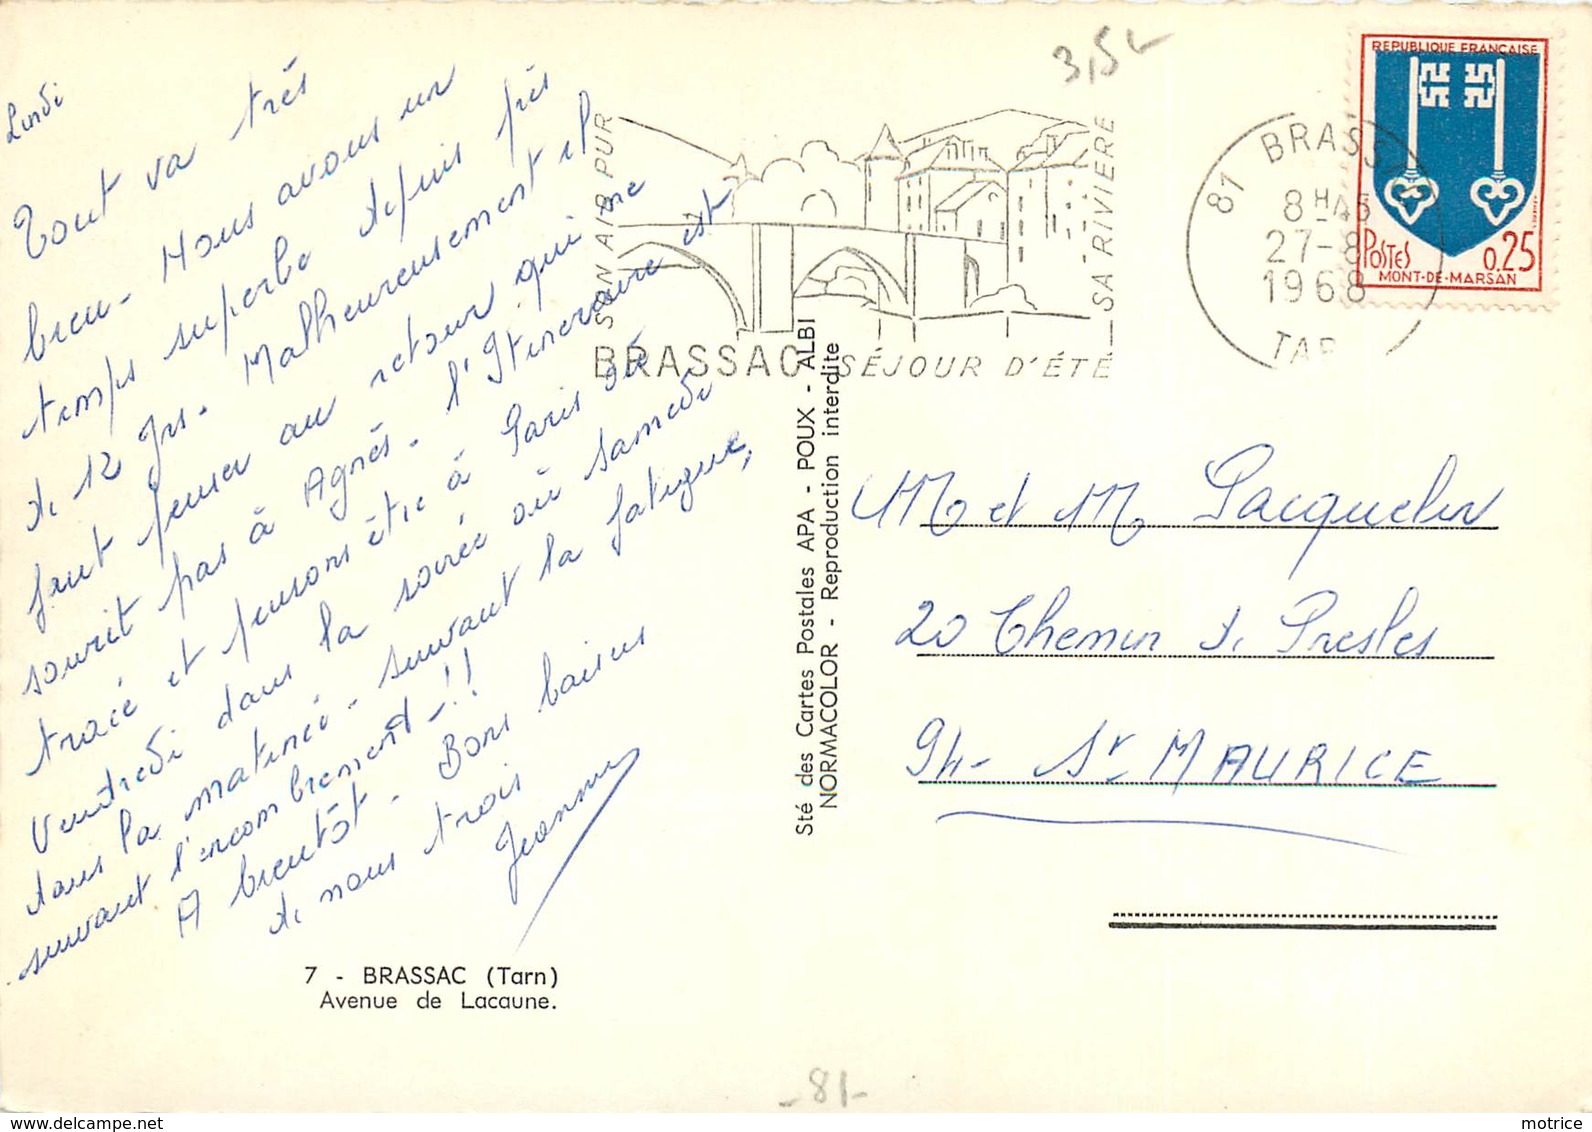 Lundi
Tout va très
bien - Nous avons un
temps superbe depuis près
de 12 Jrs. Malheureusement il
faut penser au retour qui ne
sourit pas à Agnès - l'Itineraire est
tracé et pensons être à Paris soit
Vendredi dans la soirée ou samedi
dans la matinée - suivant la fatigue,
suivant l'encombrement - !!
A bientôt - Bons baisers
de nous trois
Jeanne
7 - BRASSAC (Tarn)
Avenue de Lacaune.
Sté des Cartes Postales APA - POUX - ALBI
NORMACOLOR - Reproduction interdite
3,5
SON AIR PUR
SA RIVIÈRE
BRASSAC SÉJOUR D'ÉTÉ
81 BRASSAC
8H45
27-8
1968
TARN
REPUBLIQUE FRANCAISE
POSTES 0,25
MONT-DE-MARSAN
M et M Jacquelin
20 Chemin de Presles
94 - St MAURICE
- 81 -
www.delcampe.net
motrice